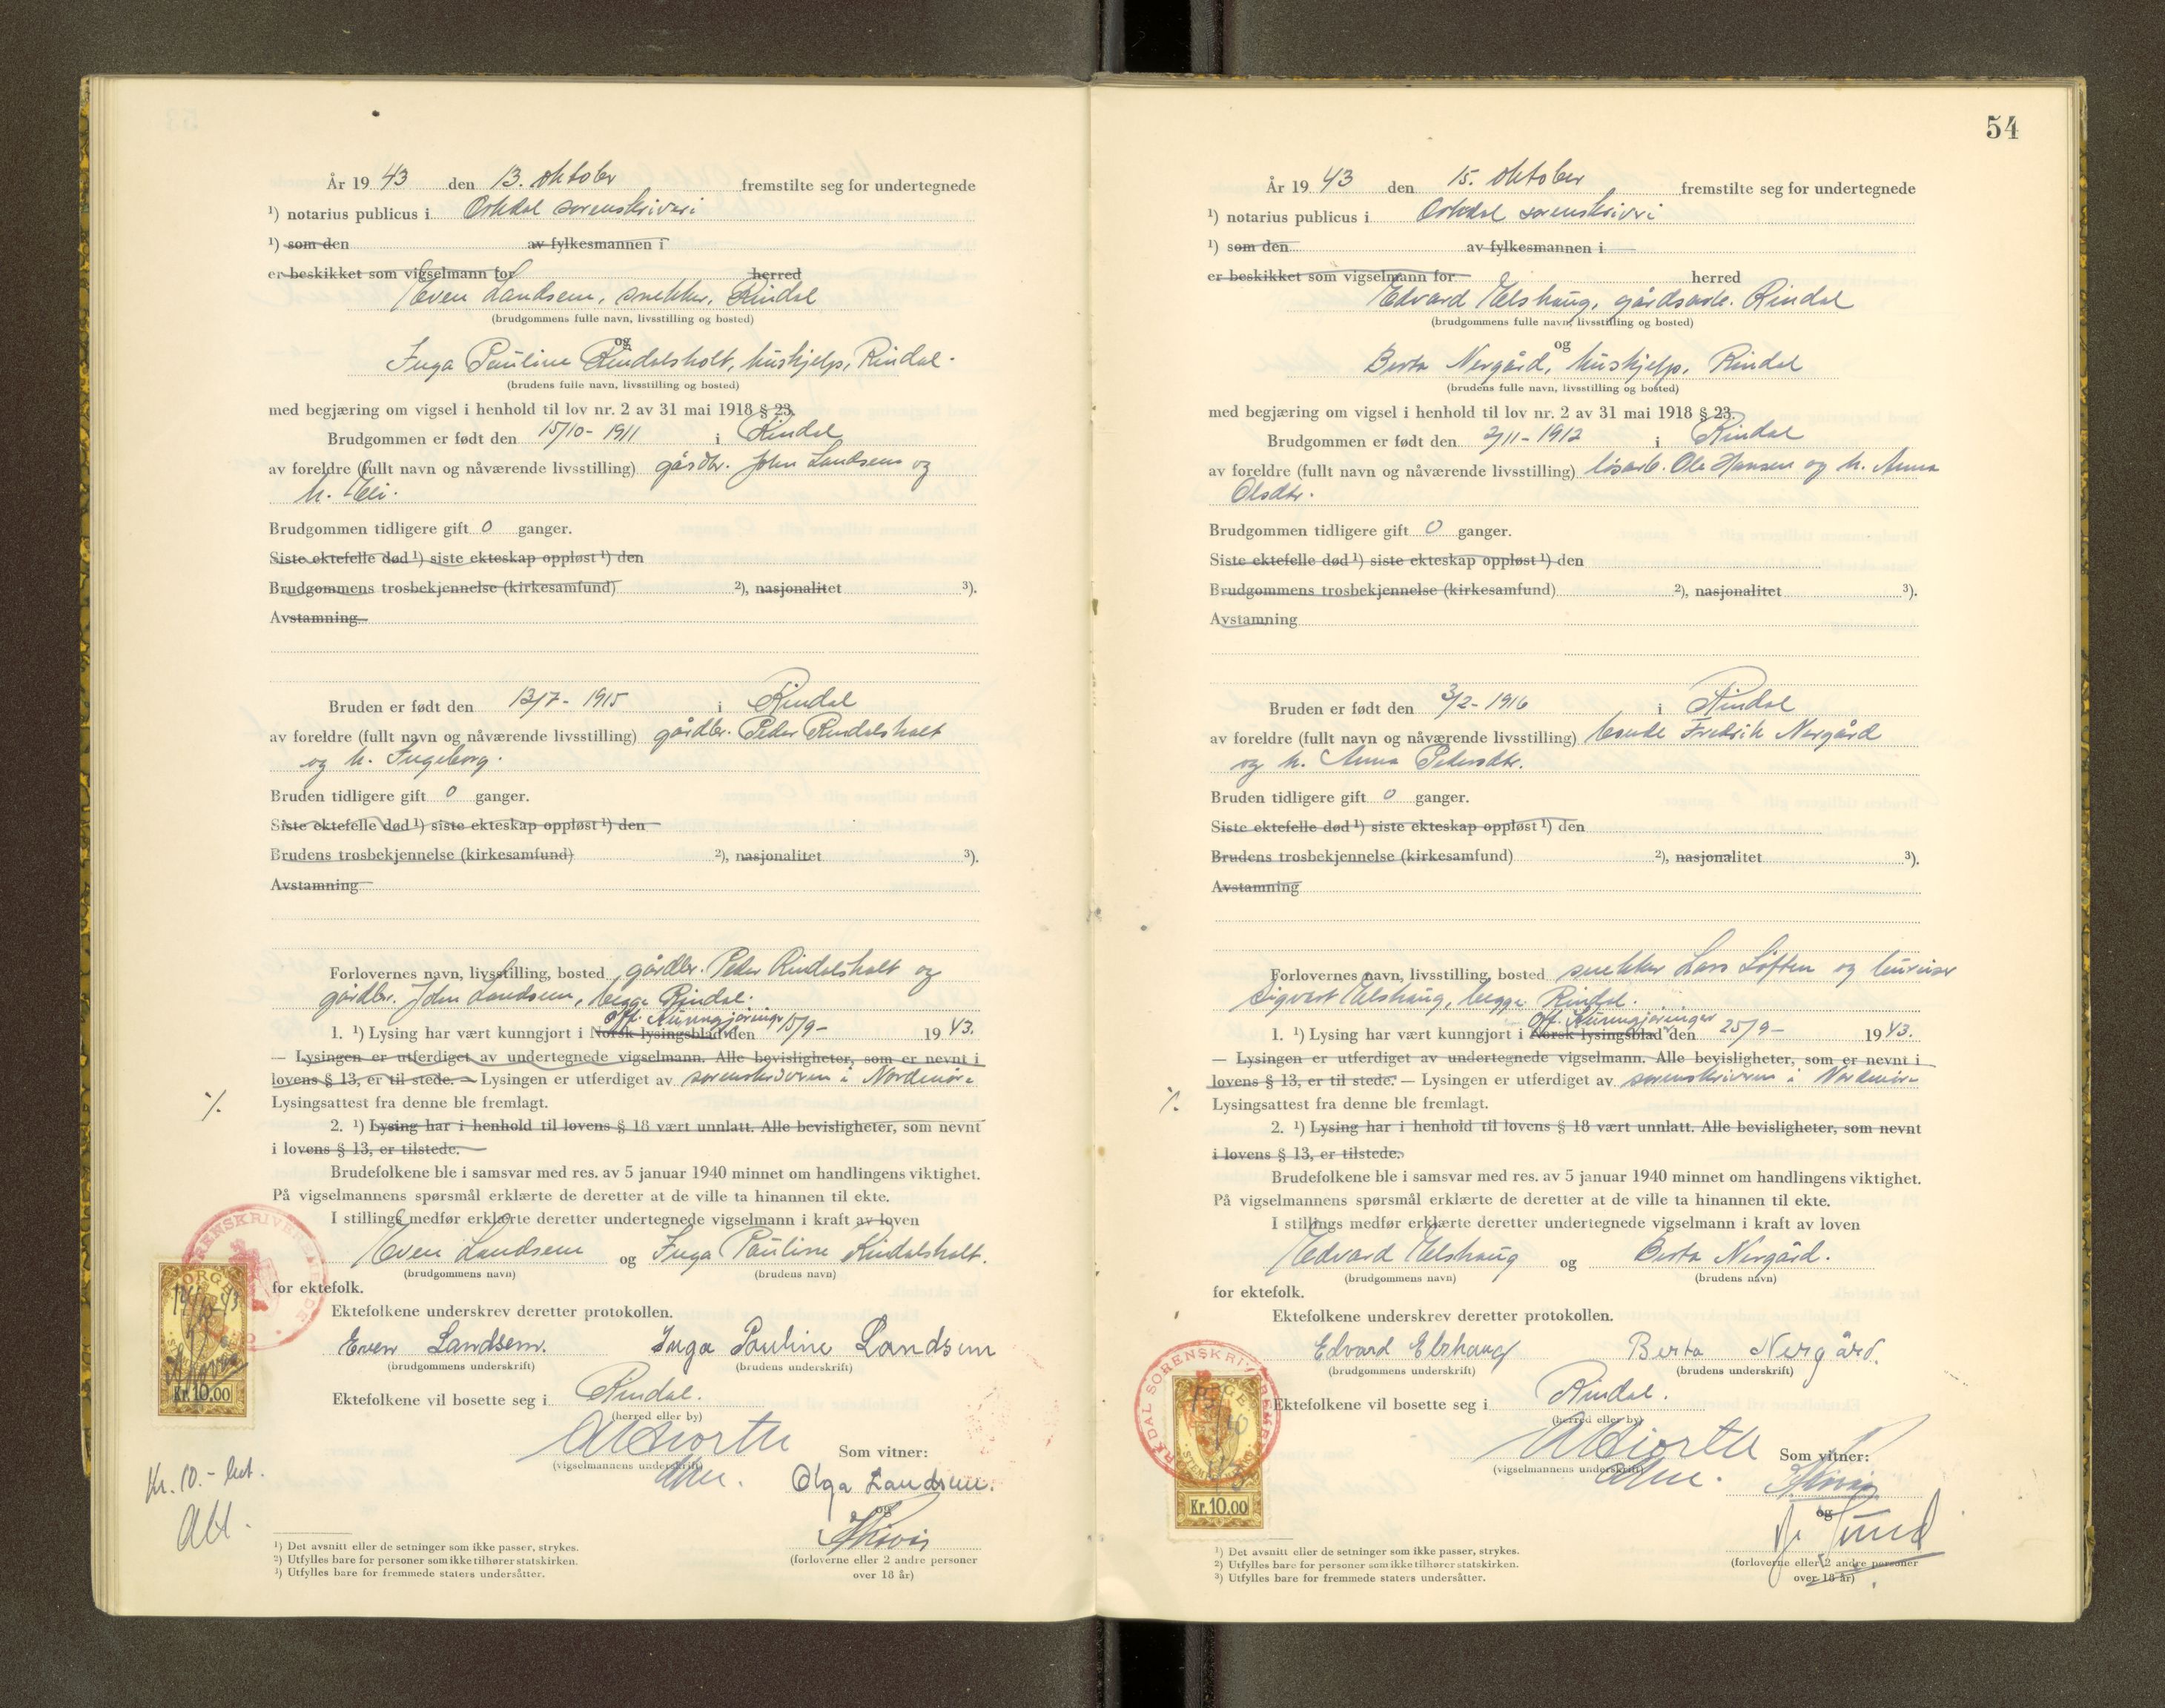 År 19 43 den 13. oktober fremstilte seg for undertegnede
¹) notarius publicus i Orkdal sorenskriveri
¹) som den av fylkesmannen i
er beskikket som vigselmann for herred
Even Landsem, snekker, Rindal
(brudgommens fulle navn, livsstilling og bosted)
og
Inga Pauline Rindalsholt, hushjelp, Rindal.
(brudens fulle navn, livsstilling og bosted)
med begjæring om vigsel i henhold til lov nr. 2 av 31 mai 1918 § 23.
Brudgommen er født den 15/10-1911 i Rindal
av foreldre (fullt navn og nåværende livsstilling) gårdbr. John Landsem og
h. Eli.
Brudgommen tidligere gift 0 ganger.
Siste ektefelle død ¹) siste ekteskap oppløst ¹) den
Brudgommens trosbekjennelse (kirkesamfund) ²), nasjonalitet ³).
Avstamning
Bruden er født den 13/7-1915 i Rindal
av foreldre (fullt navn og nåværende livsstilling) gårdbr. Peder Rindalsholt
og h. Ingeborg.
Bruden tidligere gift 0 ganger.
Siste ektefelle død ¹) siste ekteskap oppløst ¹) den
Brudens trosbekjennelse (kirkesamfund) ²), nasjonalitet ³).
Avstamning
Forlovernes navn, livsstilling, bosted gårdbr. Peder Rindalsholt og
gårdbr. John Landsem, begge Rindal.
off. Kunngjøringer
1. ¹) Lysing har vært kunngjort i Norsk lysingsblad den 15/9- 19 43.
— Lysingen er utferdiget av undertegnede vigselmann. Alle bevisligheter, som er nevnt i
lovens § 13, er til stede. — Lysingen er utferdiget av sorenskriveren i Nordmøre
Lysingsattest fra denne ble fremlagt.
2. ¹) Lysing har i henhold til lovens § 18 vært unnlatt. Alle bevisligheter, som nevnt
i lovens § 13, er tilstede.
Brudefolkene ble i samsvar med res. av 5 januar 1940 minnet om handlingens viktighet.
På vigselmannens spørsmål erklærte de deretter at de ville ta hinannen til ekte.
I stillings medfør erklærte deretter undertegnede vigselmann i kraft av loven
Even Landsem og Inga Pauline Rindalsholt.
(brudgommens navn) (brudens navn)
for ektefolk.
Ektefolkene underskrev deretter protokollen.
Even Landsem. Inga Pauline Landsem
(brudgommens underskrift) (brudens underskrift)
Ektefolkene vil bosette seg i Rindal.
(herred eller by)
Kr. 10.00
Som vitner:
(vigselmannens underskrift)
Olga Landsem.
og
Kr. 10.-
(forloverne eller 2 andre personer
over 18 år)
¹) Det avsnitt eller de setninger som ikke passer, strykes.
²) Utfylles bare for personer som ikke tilhører statskirken.
³) Utfylles bare for fremmede staters undersåtter.
54
År 19 43 den 15. oktober fremstilte seg for undertegnede
¹) notarius publicus i Orkdal sorenskriveri
¹) som den av fylkesmannen i
er beskikket som vigselmann for herred
Edvard Elshaug, gårdsarb. Rindal
(brudgommens fulle navn, livsstilling og bosted)
og
Berta Nergård, hushjelp, Rindal
(brudens fulle navn, livsstilling og bosted)
med begjæring om vigsel i henhold til lov nr. 2 av 31 mai 1918 § 23.
Brudgommen er født den 2/11-1912 i Rindal
av foreldre (fullt navn og nåværende livsstilling) løsarb. Ole Hansen og h. Anna
Olsdtr.
Brudgommen tidligere gift 0 ganger.
Siste ektefelle død ¹) siste ekteskap oppløst ¹) den
Brudgommens trosbekjennelse (kirkesamfund) ²), nasjonalitet ³).
Avstamning
Bruden er født den 3/2-1916 i Rindal
av foreldre (fullt navn og nåværende livsstilling) bonde Fredrik Nergård
og h. Anna Pedersdtr.
Bruden tidligere gift 0 ganger.
Siste ektefelle død ¹) siste ekteskap oppløst ¹) den
Brudens trosbekjennelse (kirkesamfund) ²), nasjonalitet ³).
Avstamning
Forlovernes navn, livsstilling, bosted snekker Lars Løften og bureiser
Sigvart Elshaug, begge Rindal.
off. Kunngjøringer
1. ¹) Lysing har vært kunngjort i Norsk lysingsblad den 25/9- 19 43.
— Lysingen er utferdiget av undertegnede vigselmann. Alle bevisligheter, som er nevnt i
lovens § 13, er til stede. — Lysingen er utferdiget av sorenskriveren i Nordmøre
Lysingsattest fra denne ble fremlagt.
2. ¹) Lysing har i henhold til lovens § 18 vært unnlatt. Alle bevisligheter, som nevnt
i lovens § 13, er tilstede.
Brudefolkene ble i samsvar med res. av 5 januar 1940 minnet om handlingens viktighet.
På vigselmannens spørsmål erklærte de deretter at de ville ta hinannen til ekte.
I stillings medfør erklærte deretter undertegnede vigselmann i kraft av loven
Edvard Elshaug og Berta Nergård.
(brudgommens navn) (brudens navn)
for ektefolk.
Ektefolkene underskrev deretter protokollen.
Edvard Elshaug Berta Nergård.
(brudgommens underskrift) (brudens underskrift)
Ektefolkene vil bosette seg i Rindal.
(herred eller by)
Som vitner:
(vigselmannens underskrift)
og
Kr. 10.00
(forloverne eller 2 andre personer
over 18 år)
¹) Det avsnitt eller de setninger som ikke passer, strykes.
²) Utfylles bare for personer som ikke tilhører statskirken.
³) Utfylles bare for fremmede staters undersåtter.